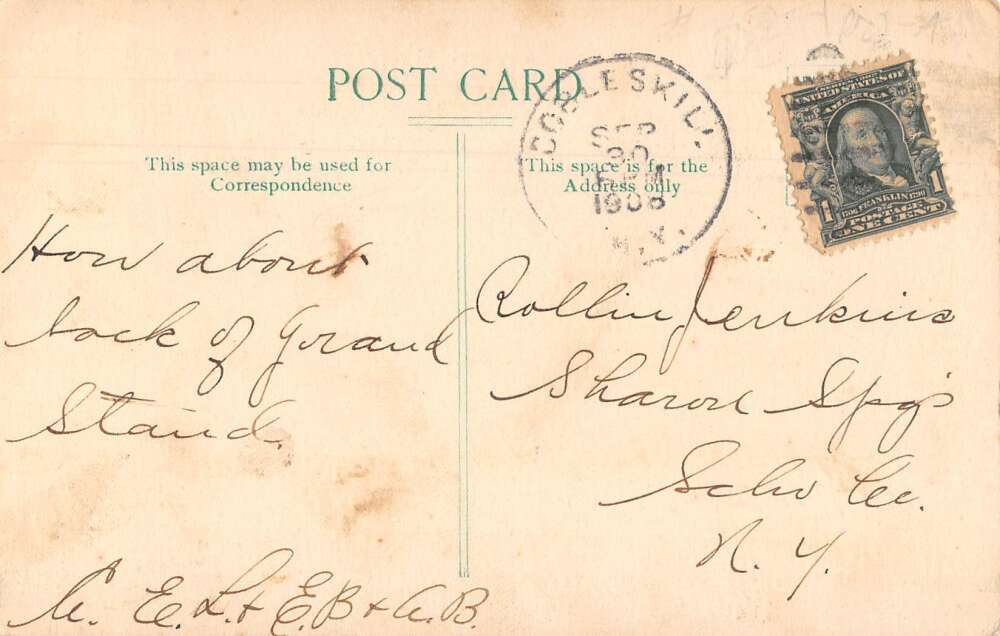 POST CARD
COBLESKILL
SEP
30
5 PM
1908
N.Y.
UNITED STATES OF
AMERICA
1 FRANKLIN 1
POSTAGE
ONE CENT
This space may be used for
Correspondence
This space is for the
Address only
How about
back of Grand
Stand.
A. E. L. & E. B & A. B.
Rollin Jenkins
Sharon Spgs
Scho Co.
N. Y.